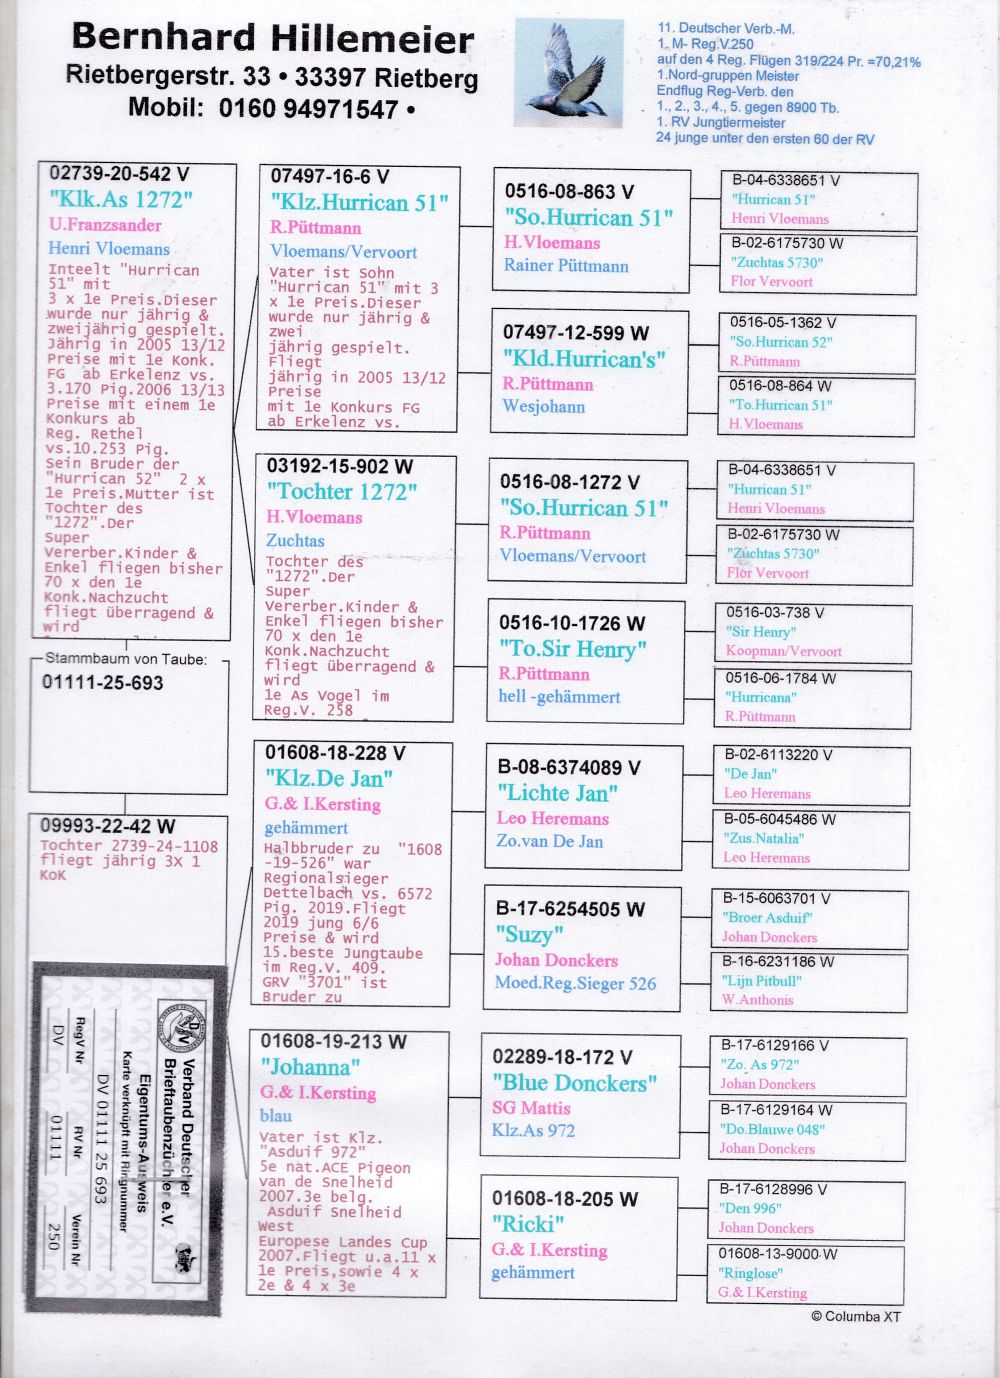 Bernhard Hillemeier
Rietbergerstr. 33 • 33397 Rietberg
Mobil: 0160 94971547 •
11. Deutscher Verb.-M.
1. M- Reg.V.250
auf den 4 Reg. Flügen 319/224 Pr. =70,21%
1.Nord-gruppen Meister
Endflug Reg-Verb. den
1., 2., 3., 4., 5. gegen 8900 Tb.
1. RV Jungtiermeister
24 junge unter den ersten 60 der RV
02739-20-542 V
"Klk.As 1272"
U.Franzsander
Henri Vloemans
Inteelt "Hurrican
51" mit
3 x 1e Preis.Dieser
wurde nur jährig &
zweijährig gespielt.
Jährig in 2005 13/12
Preise mit 1e Konk.
FG ab Erkelenz vs.
3.170 Pig.2006 13/13
Preise mit einem 1e
Konkurs ab
Reg. Rethel
vs.10.253 Pig.
Sein Bruder der
"Hurrican 52" 2 x
1e Preis.Mutter ist
Tochter des
"1272".Der
Super
Vererber.Kinder &
Enkel fliegen bisher
70 x den 1e
Konk.Nachzucht
fliegt überragend &
wird
Stammbaum von Taube:
01111-25-693
09993-22-42 W
Tochter 2739-24-1108
fliegt jährig 3X 1
KoK
Verband Deutscher
Brieftaubenzüchter e.V.
Eigentums-Ausweis
Karte verknüpft mit Ringnummer
DV 01111 25 693
RegV Nr
RV Nr
Verein Nr
DV
01111
250
07497-16-6 V
"Klz.Hurrican 51"
R.Püttmann
Vloemans/Vervoort
Vater ist Sohn
"Hurrican 51" mit 3
x 1e Preis.Dieser
wurde nur jährig &
zwei
jährig gespielt.
Fliegt
jährig in 2005 13/12
Preise
mit 1e Konkurs FG
ab Erkelenz vs.
03192-15-902 W
"Tochter 1272"
H.Vloemans
Zuchtas
Tochter des
"1272".Der
Super
Vererber.Kinder &
Enkel fliegen bisher
70 x den 1e
Konk.Nachzucht
fliegt überragend &
wird
1e As Vogel im
Reg.V. 258
01608-18-228 V
"Klz.De Jan"
G.& I.Kersting
gehämmert
Halbbruder zu "1608
-19-526" war
Regionalsieger
Dettelbach vs. 6572
Pig. 2019.Fliegt
2019 jung 6/6
Preise & wird
15.beste Jungtaube
im Reg.V. 409.
GRV "3701" ist
Bruder zu
01608-19-213 W
"Johanna"
G.& I.Kersting
blau
Vater ist Klz.
"Asduif 972"
5e nat.ACE Pigeon
van de Snelheid
2007.3e belg.
Asduif Snelheid
West
Europese Landes Cup
2007.Fliegt u.a.11 x
1e Preis,sowie 4 x
2e & 4 x 3e
0516-08-863 V
"So.Hurrican 51"
H.Vloemans
Rainer Püttmann
07497-12-599 W
"Kld.Hurrican's"
R.Püttmann
Wesjohann
0516-08-1272 V
"So.Hurrican 51"
R.Püttmann
Vloemans/Vervoort
0516-10-1726 W
"To.Sir Henry"
R.Püttmann
hell -gehämmert
B-08-6374089 V
"Lichte Jan"
Leo Heremans
Zo.van De Jan
B-17-6254505 W
"Suzy"
Johan Donckers
Moed.Reg.Sieger 526
02289-18-172 V
"Blue Donckers"
SG Mattis
Klz.As 972
01608-18-205 W
"Ricki"
G.& I.Kersting
gehämmert
B-04-6338651 V
"Hurrican 51"
Henri Vloemans
B-02-6175730 W
"Zuchtas 5730"
Flor Vervoort
0516-05-1362 V
"So.Hurrican 52"
R.Püttmann
0516-08-864 W
"To.Hurrican 51"
H.Vloemans
B-04-6338651 V
"Hurrican 51"
Henri Vloemans
B-02-6175730 W
"Zuchtas 5730"
Flor Vervoort
0516-03-738 V
"Sir Henry"
Koopman/Vervoort
0516-06-1784 W
"Hurricana"
R.Püttmann
B-02-6113220 V
"De Jan"
Leo Heremans
B-05-6045486 W
"Zus.Natalia"
Leo Heremans
B-15-6063701 V
"Broer Asduif"
Johan Donckers
B-16-6231186 W
"Lijn Pitbull"
W.Anthonis
B-17-6129166 V
"Zo. As 972"
Johan Donckers
B-17-6129164 W
"Do.Blauwe 048"
Johan Donckers
B-17-6128996 V
"Den 996"
Johan Donckers
01608-13-9000 W
"Ringlose"
G.& I.Kersting
© Columba XT